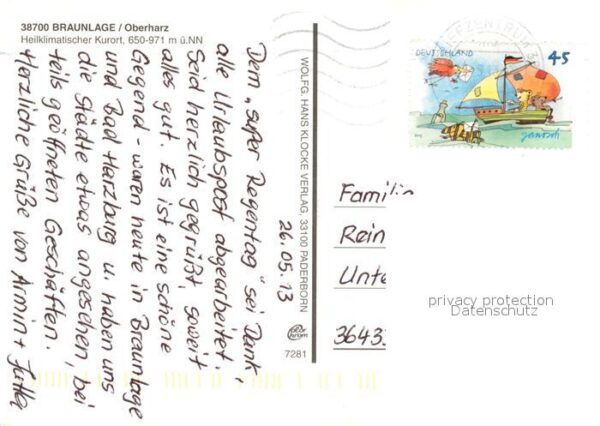 38700 BRAUNLAGE / Oberharz
Heilklimatischer Kurort, 650-971 m ü.NN
26.05.13
Dem „super Regentag" sei Dank -
alle Urlaubspost abgearbeitet.
Seid herzlich gegrüßt, soweit
alles gut. Es ist eine schöne
Gegend - waren heute in Braunlage
und Bad Harzburg u. haben uns
die Städte etwas angesehen, bei
teils geöffneten Geschäften.
Herzliche Grüße von Armin +
WOLFG. HANS KLOCKE VERLAG, 33100 PADERBORN
7281
DEUTSCHLAND
45
janosch
Famili
Rein
Unte
3643
privacy protection
Datenschutz